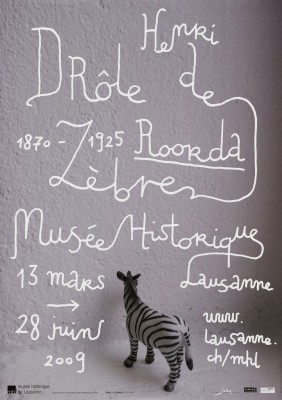 Henri
DRôle de
1870 - 1925 Roorda
Zèbre
Musée Historique
13 mars Lausanne
→
28 juin www.
2009 lausanne.
ch/mhl
musée historique
de Lausanne